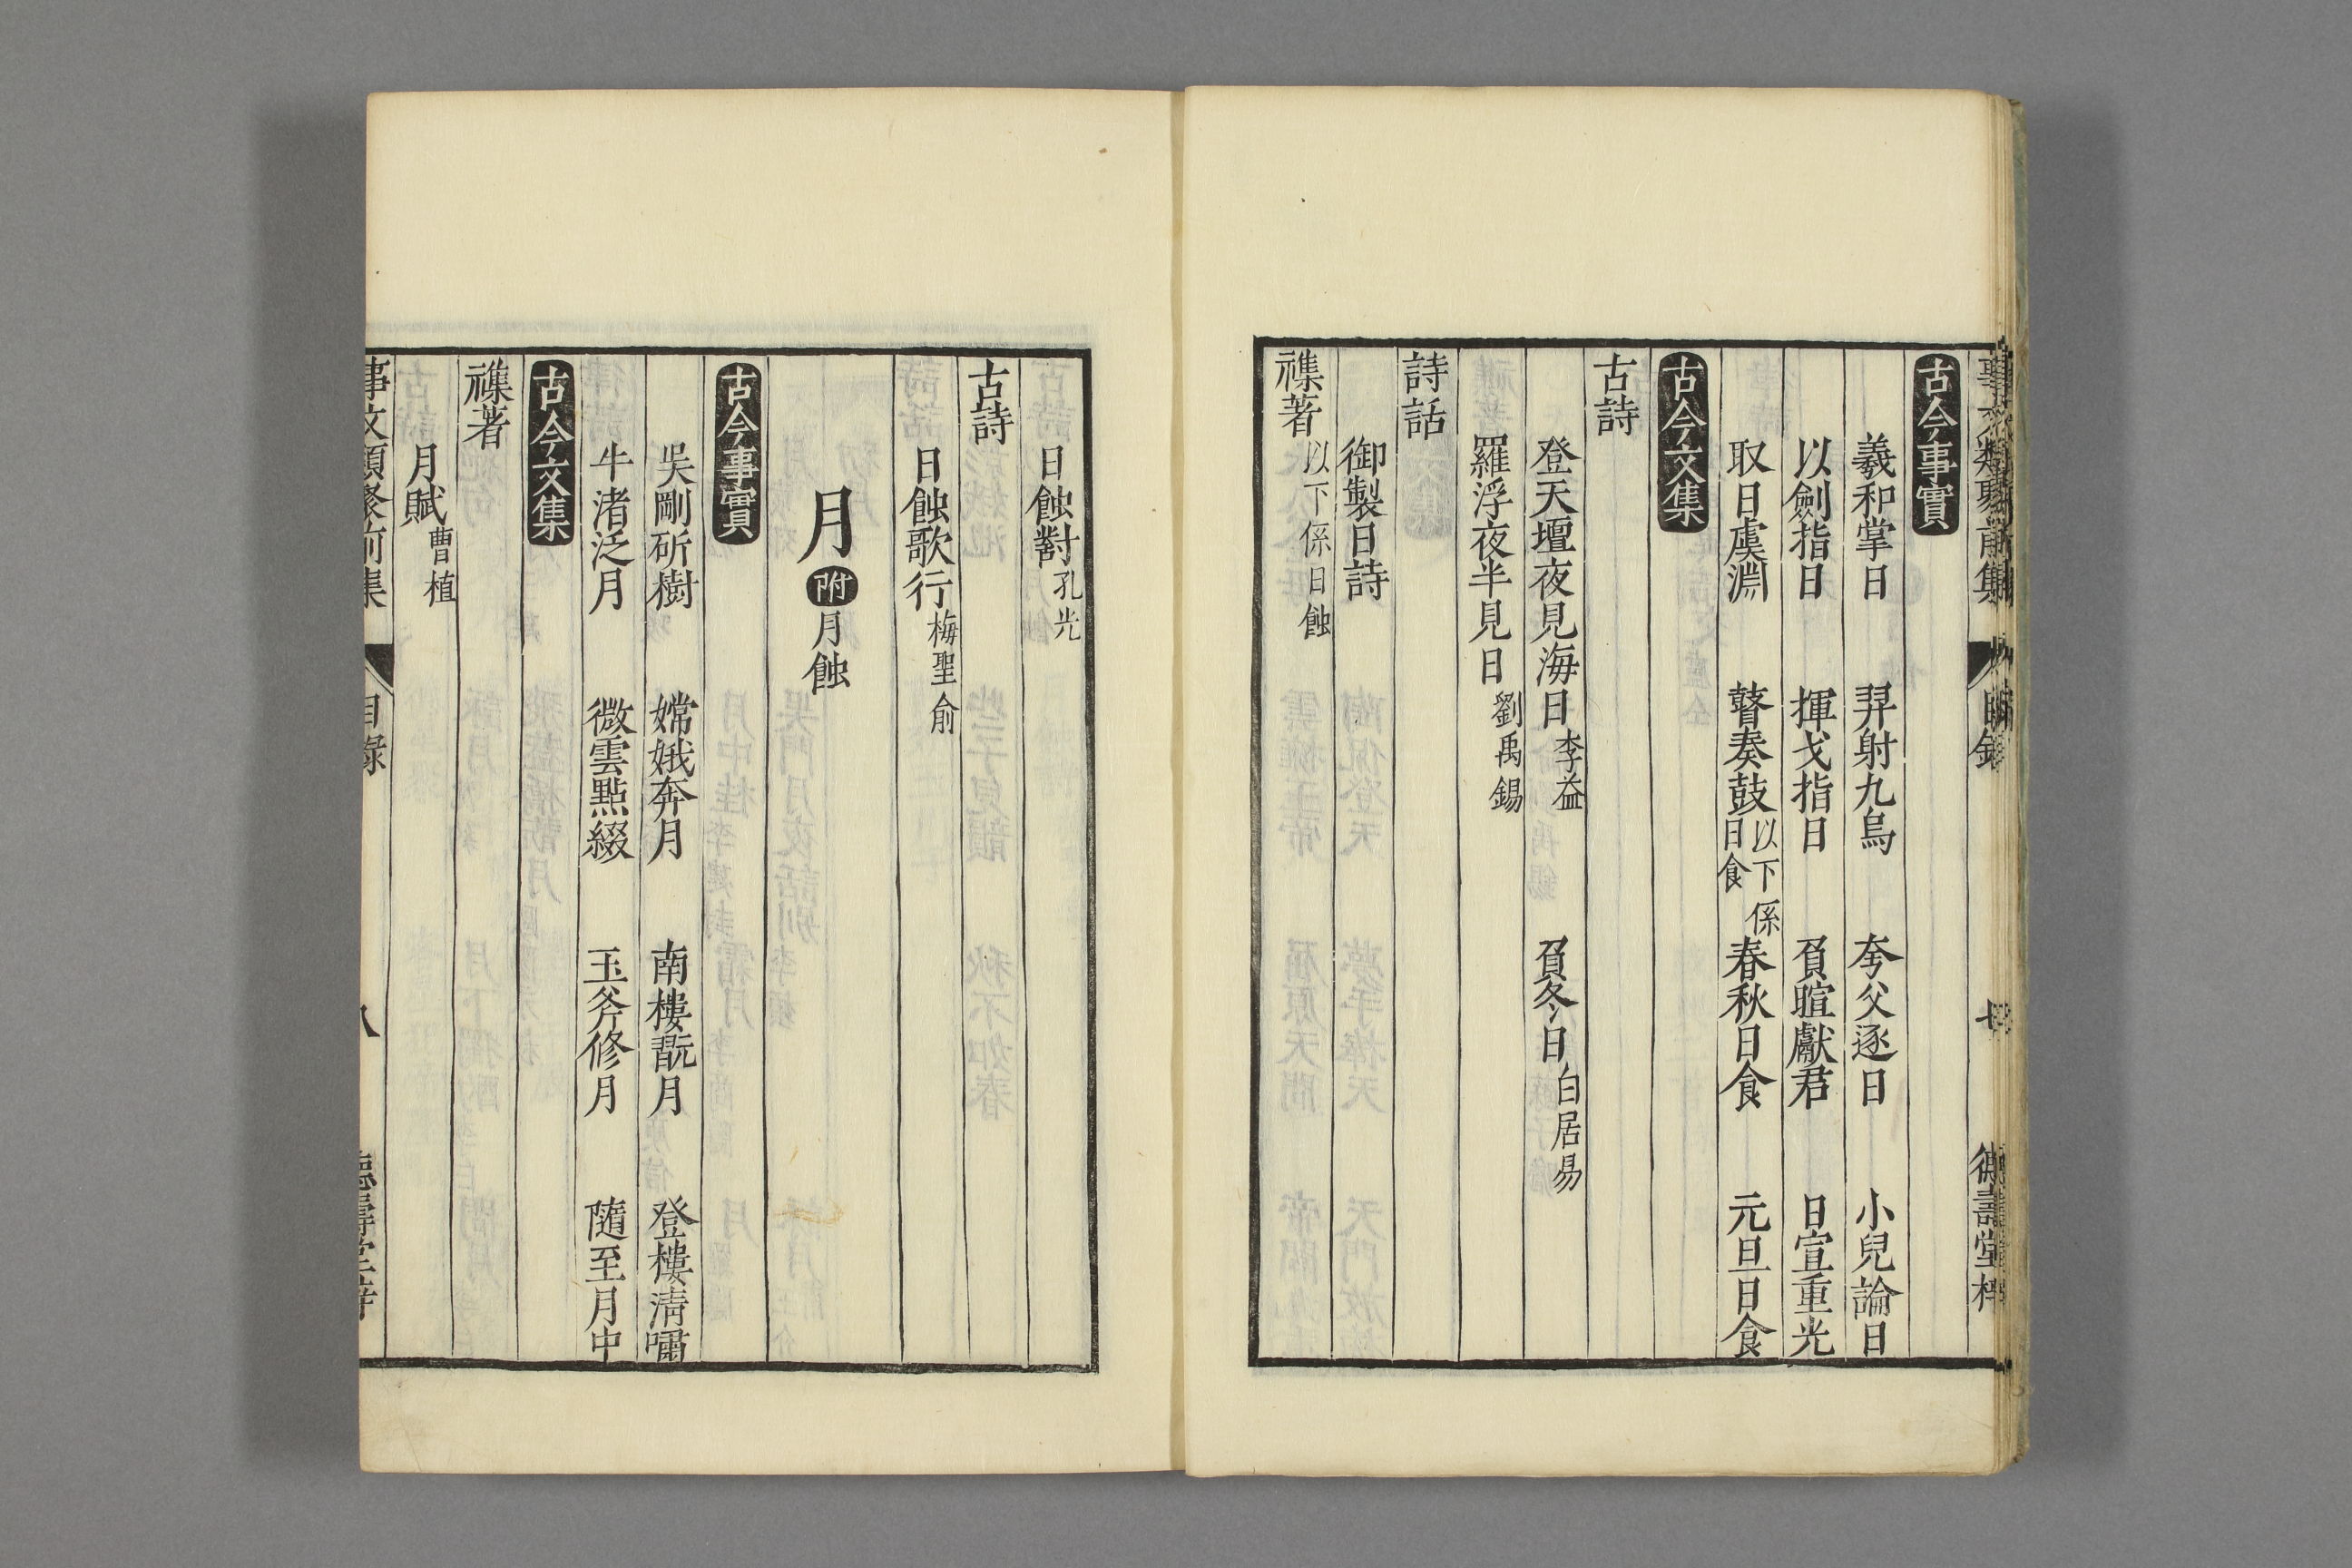 事文類聚前集 目錄 七 德壽堂梓
古今事實
羲和掌日 羿射九烏 夸父逐日 小兒論日
以劍指日 揮戈指日 負暄獻君 日宣重光
取日虞淵 瞽奏鼓以下係日食 春秋日食 元旦日食
古今文集
古詩
登天壇夜見海日李益 負冬日白居易
羅浮夜半見日劉禹錫
詩話
御製日詩
襍著以下係日蝕
日蝕對孔光
古詩
日蝕歌行梅聖俞
月附月蝕
古今事實
吳剛斫樹 嫦娥奔月 南樓翫月 登樓淸嘯
牛渚泛月 微雲點綴 玉斧修月 隨至月中
古今文集
襍著
月賦曹植
事文類聚前集 目錄 八